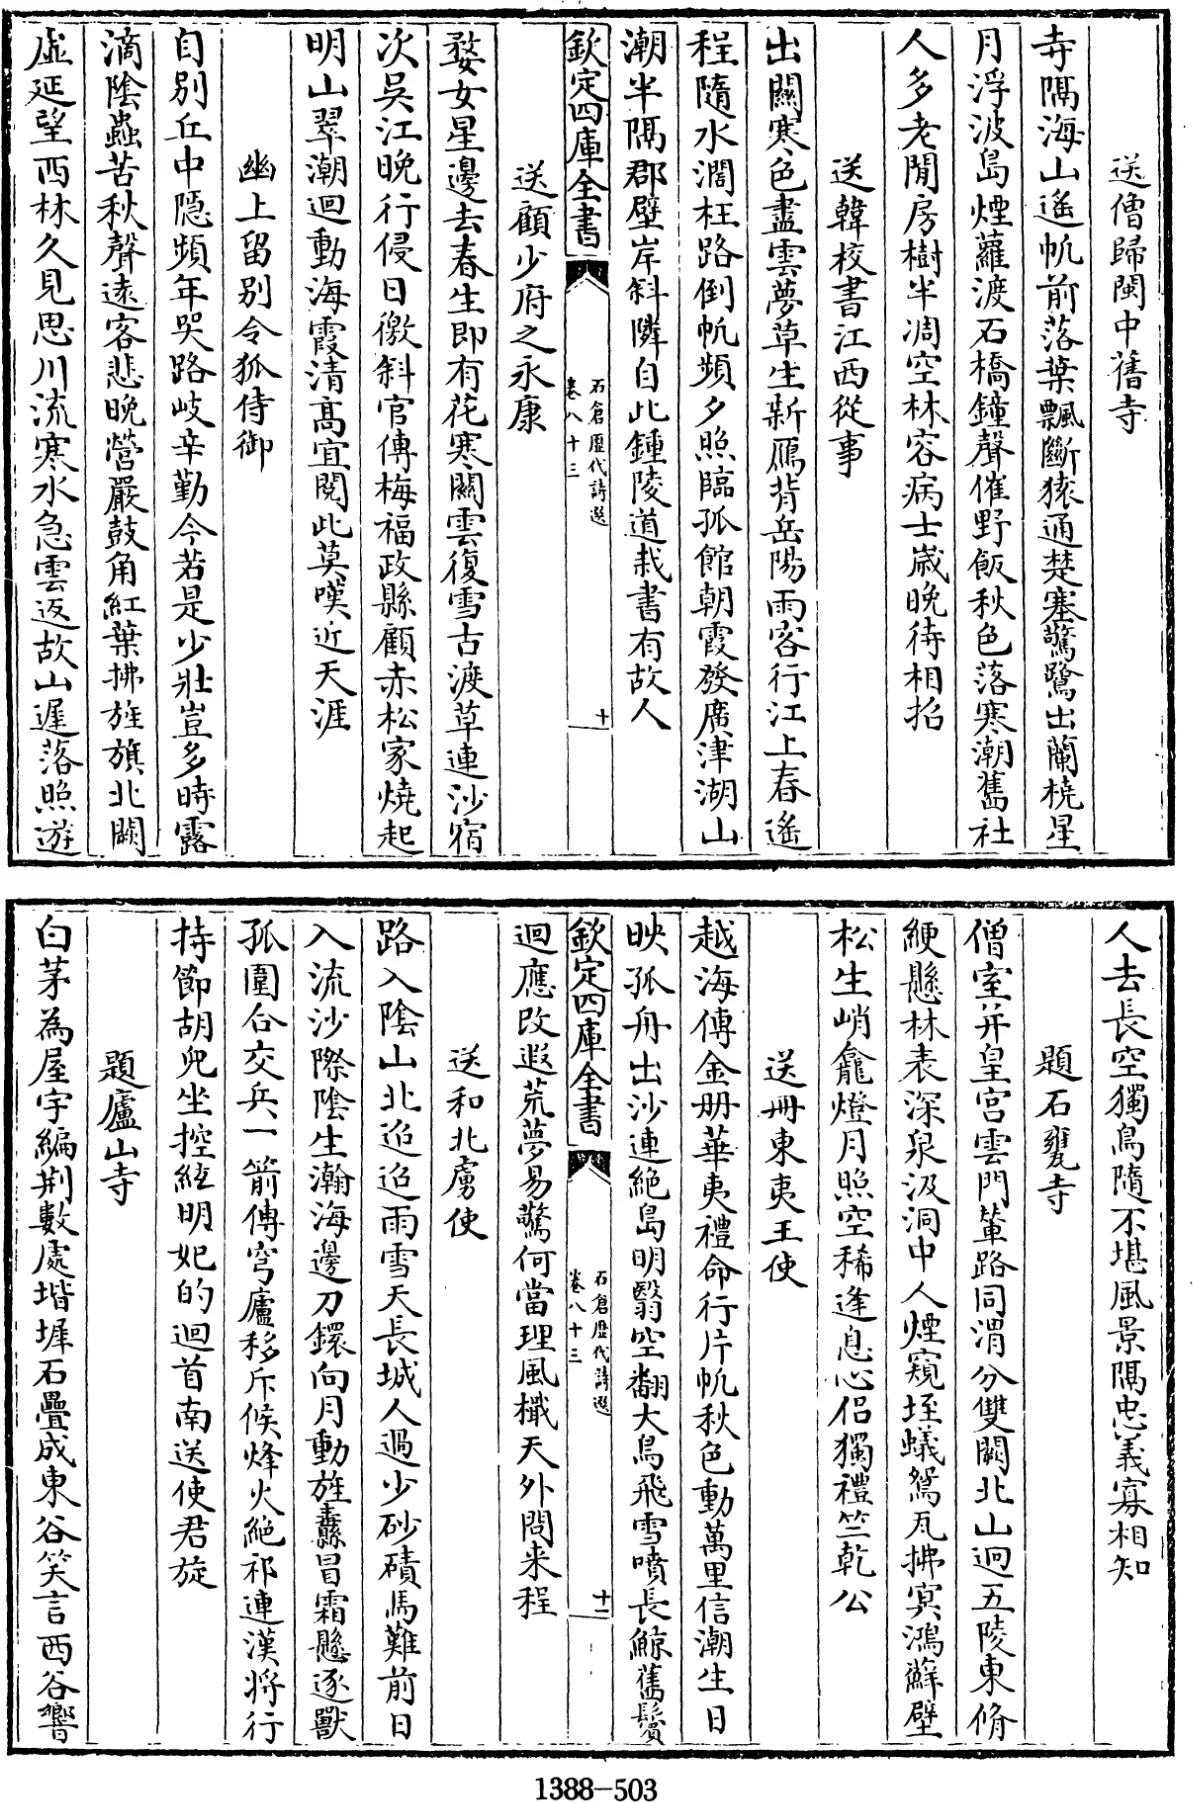 送僧歸閩中舊寺
寺隔海山遙帆前落葉飄斷猿通楚塞驚鷺出蘭橈星
月浮波島煙蘿渡石橋鐘聲催野飯秋色落寒潮舊社
人多老閒房樹半凋空林容病士歲晚待相招
送韓校書江西從事
出關寒色盡雲夢草生新鴈背岳陽雨客行江上春遙
程隨水濶枉路倒帆頻夕照臨孤館朝霞發廣津湖山
潮半隔郡壁岸斜隣自此鍾陵道栽書有故人
欽定四庫全書
石倉歷代詩選
卷八十三
十
送顧少府之永康
婺女星邊去春生即有花寒關雲復雪古渡草連沙宿
次吳江晚行侵日徼斜官傳梅福政縣顧赤松家燒起
明山翠潮迴動海霞清髙宜閱此莫嘆近天涯
幽上留别令狐侍御
自别丘中隱頻年哭路岐辛勤今若是少壯豈多時露
滴陰蟲苦秋聲逺客悲晚營嚴鼓角紅葉拂旌旗北闕
虛延望西林久見思川流寒水急雲返故山遲落照遊
人去長空獨鳥隨不堪風景隔忠義寡相知
題石甕寺
僧室并皇宮雲門輦路同渭分雙闕北山迥五陵東脩
綆懸林表深泉汲洞中人煙窺垤蟻鴛瓦拂冥鴻蘚壁
松生峭龕燈月照空稀逢息心侣獨禮竺乾公
送冊東夷王使
越海傳金册華夷禮命行片帆秋色動萬里信潮生日
映孤舟出沙連絶島明翳空翻大鳥飛雪噴長鯨舊鬢
欽定四庫全書
石倉歷代詩選
卷八十三
十一
迴應改遐荒夢易驚何當理風檝天外問来程
送和北虜使
路入隂山北迢迢雨雪天長城人過少砂磧馬難前日
入流沙際陰生瀚海邊刀鐶向月動旌纛冒霜懸逐獸
孤圍合交兵一箭傳穹廬移斥候烽火絶祁連漢將行
持節胡兒坐控絃明妃的迴首南送使君旋
題廬山寺
白茅為屋宇編荆數處堦墀石疊成東谷笑言西谷響
1388-503